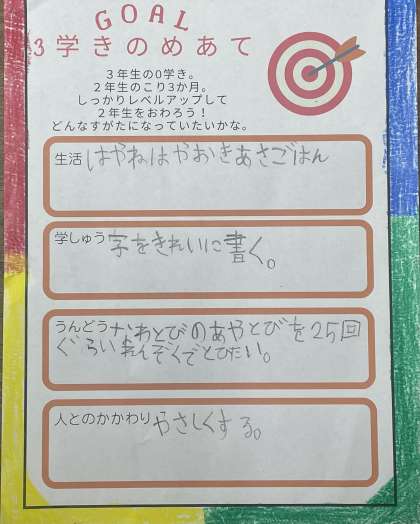 GOAL
3学きのめあて
3年生の0学き。
2年生のこり3か月。
しっかりレベルアップして
2年生をおわろう！
どんなすがたになっていたいかな。
生活 はやねはやおきあさごはん
学しゅう 字をきれいに書く。
うんどう なわとびのあやとびを25回
ぐらいれんぞくでとびたい。
人とのかかわり やさしくする。